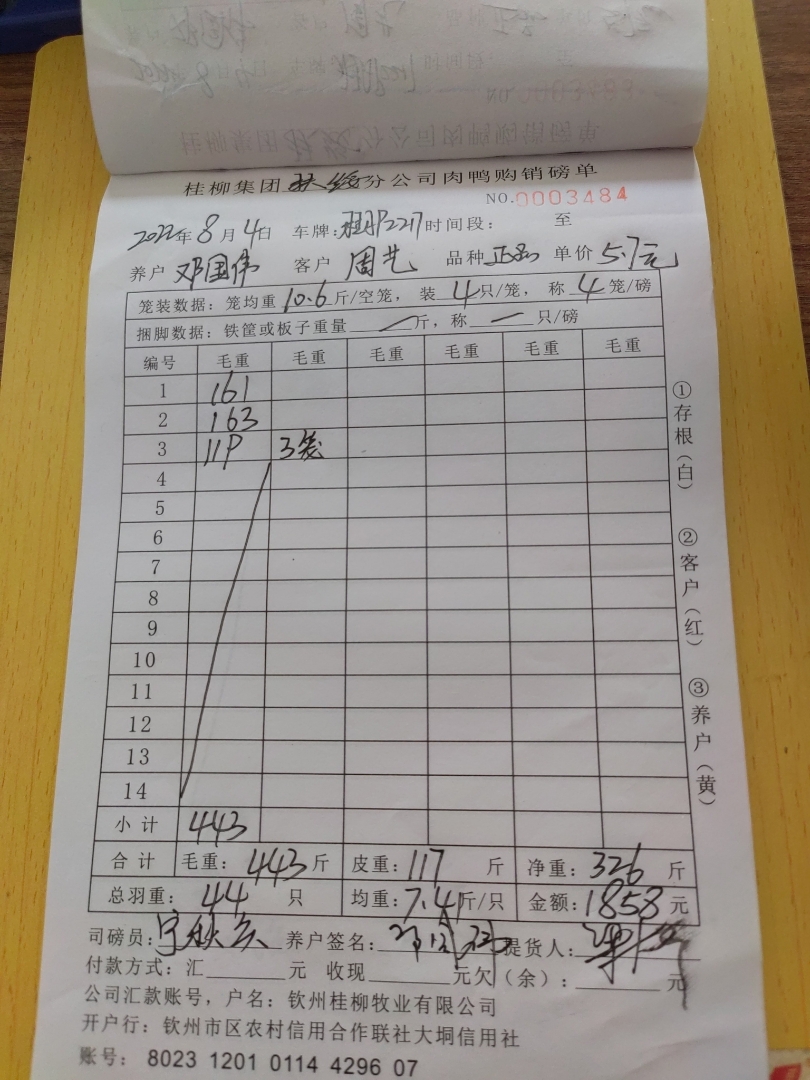 桂柳集团扶绥分公司肉鸭购销磅单
NO.0003484
2022年8月4日 车牌: 时间段: 至
养户 邓国伟 客户 周芝 品种 正品 单价 5.7元
笼装数据: 笼均重10.6斤/空笼, 装4只/笼, 称4笼/磅
捆脚数据: 铁筐或板子重量 — 斤, 称 — 只/磅
编号 毛重 毛重 毛重 毛重 毛重 毛重
1 161
2 163
3 119 3笼
4
5
6
7
8
9
10
11
12
13
14
小计 443
合计 毛重: 443斤 皮重: 117斤 净重: 326斤
总羽重: 44只 均重: 7.4斤/只 金额: 1858元
①存根(白) ②客户(红) ③养户(黄)
司磅员: 养户签名: 提货人:
付款方式: 汇 元 收现 元欠(余): 元
公司汇款账号, 户名: 钦州桂柳牧业有限公司
开户行: 钦州市区农村信用合作联社大垌信用社
账号: 8023 1201 0114 4296 07